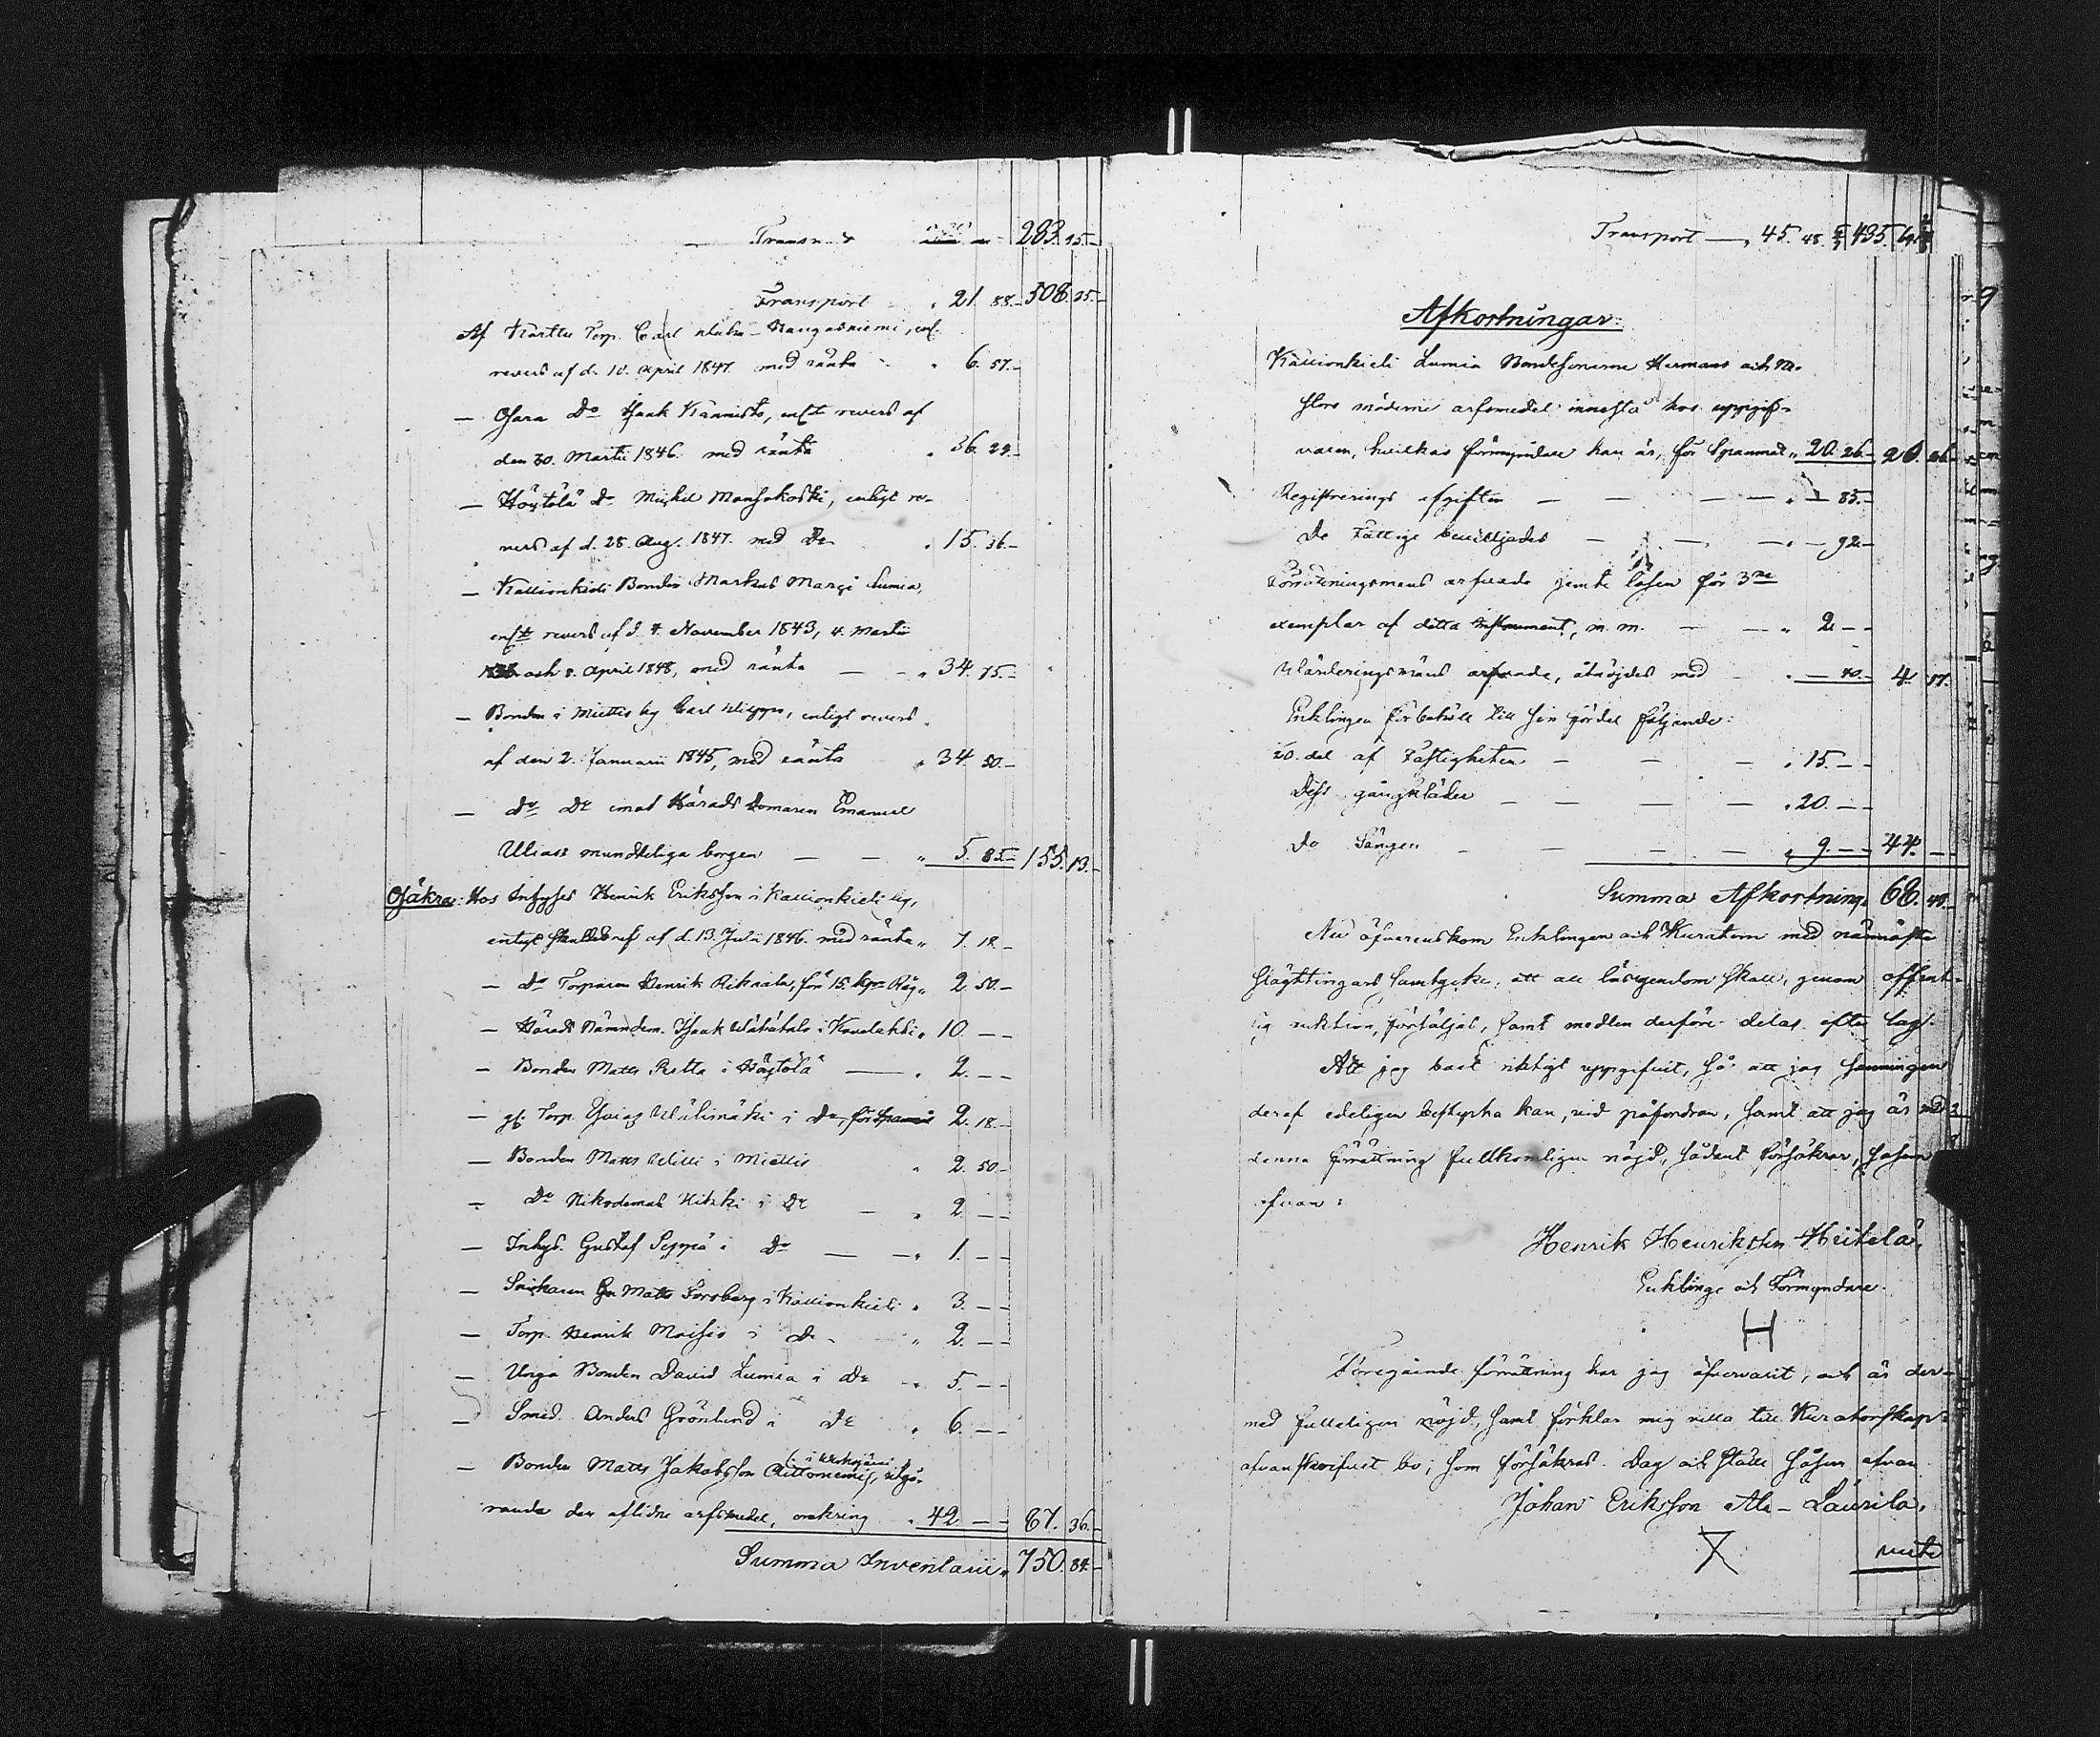 283. 15.
Transport 21. 88. 508. 35.
Af Karttu Torp. Carl Kangasniemi, enl.
revers af d. 10. April 1847. med ränta 6. 57.
— Ofara Do Isaak Kännistö, enligt revers af
den 30. Martii 1846. med ränta 36. 29.
— Höytölä Do Mickel Mansikoski, enligt re-
vers af d. 28. Aug. 1847. med Do 15. 36.
— Kallionkieli Bonden Markus Marçi Lumia,
enligt revers af d. 4. November 1843, 4. Martii
och 8. April 1848, med ränta — — 34. 75.
— Bonden i Miettis by Carl, enligt revers
af den 2. Januarii 1845, med ränta 34. 50.
— Do Do emot Härads Domaren Emanuel
Ulias's mundtliga borgen — — 5. 85. 155. 13.
Osäkra: Hos Inhyses Henrik Eriksson i Kallionkieli by,
enligt skuldebref af d. 13. Julii 1846. med ränta 7. 18.
— Do Torparen Henrik Rikala, för 15. kpr Råg 2. 50.
— Härads Nämndem. Isaak i 10. — —
— Bonden Matts Ratta i Höytölä — 2. — —
— gl. Torp. Esaias i Do 2. 18.
— Bonden Matts Willi i Miettis 2. 50.
— Do Nikodemus i Do — 2. — —
— Inhys. Gustaf Seppä i Do — — 1. — —
— Matts Forsberg i Kallionkieli 3. — —
— Torp. Henrik Moisio i Do 2. — —
— Unga Bonden David Lumia i Do 5. — —
— Smed. Anders Grönlund i Do 6. — —
— Bonden Matts Jakobsson utgö-
rande den aflidne arfsmedel, omkring 42. — — 87. 36.
Summa Inventarii 750. 84.
Transport — 45. 48. 435.
Afkortningar:
Kallionkieli Lumia Bondesönerne Hermans och
moderne arfsmedel innestå hos uppgif-
varen, hvilkas förmyndare han är, för Spannmål 20. 26. 20. 26.
Registrerings afgiften — — — — — 83.
De Fattige beviljades — — — — 92.
Förrättningsmans arfvode jemte lösen för 3ne
exemplar af detta instrument, m. m. — — 2. — —
Värderingsmäns arfvode, åtnöjdes med — 40. 4. 17.
Enklingen förbehöll till sin fördel följande:
20. del af Fastigheten — — — 15. — —
Dess gångkläder — — — — 20. — —
Do Sängen — — — — 9. — — 44. — —
Summa Afkortning. 68. 43.
Nu öfverenskom Enklingen och Kuratorn med närmaste
släktingars samtycke, att all lösegendom skall, genom offent-
lig auktion, försäljas, samt medlen derföre delas efter lag.
Att jag bart riktigt uppgifvit, så att jag sanningen
deraf edeligen bestyrka kan, vid påfordran, samt att jag är med
denna förrättning fullkomligen nöjd, sådant försäkrar, såsom
ofvan:
Henrik Henriksson Heitelä,
Enklinge och Förmyndare.
H
Föregående förrättning har jag öfvervarit, och är der-
med fulleligen nöjd, samt förklar mig villa till Kuratorskap
ofvanskrifvit bo; som försäkras. Dag och ställe såsom ofvan
Johan Eriksson Ala-Laurila,